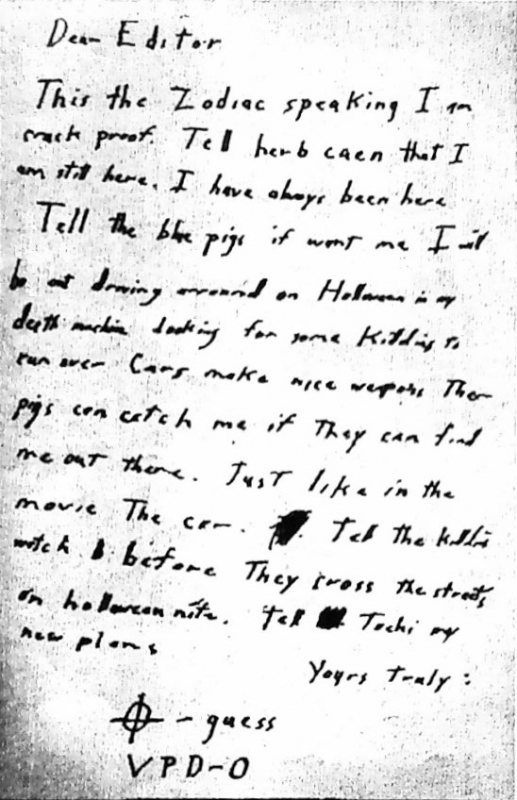 Dear Editor
This the Zodiac speaking I am
crack proof. Tell herb caen that I
am still here. I have always been here
Tell the blue pigs if want me I will
be out driving arround on Halloween in my
death machine looking for some Kiddies to
run over Cars make nice weapons Ther
pigs can catch me if They can find
me out there. Just like in the
movie The car. Tell the kiddies
watch before They cross the streets
on halloween nite. Tell Tochi my
new plans
Yours Truly :
- guess
VPD-0